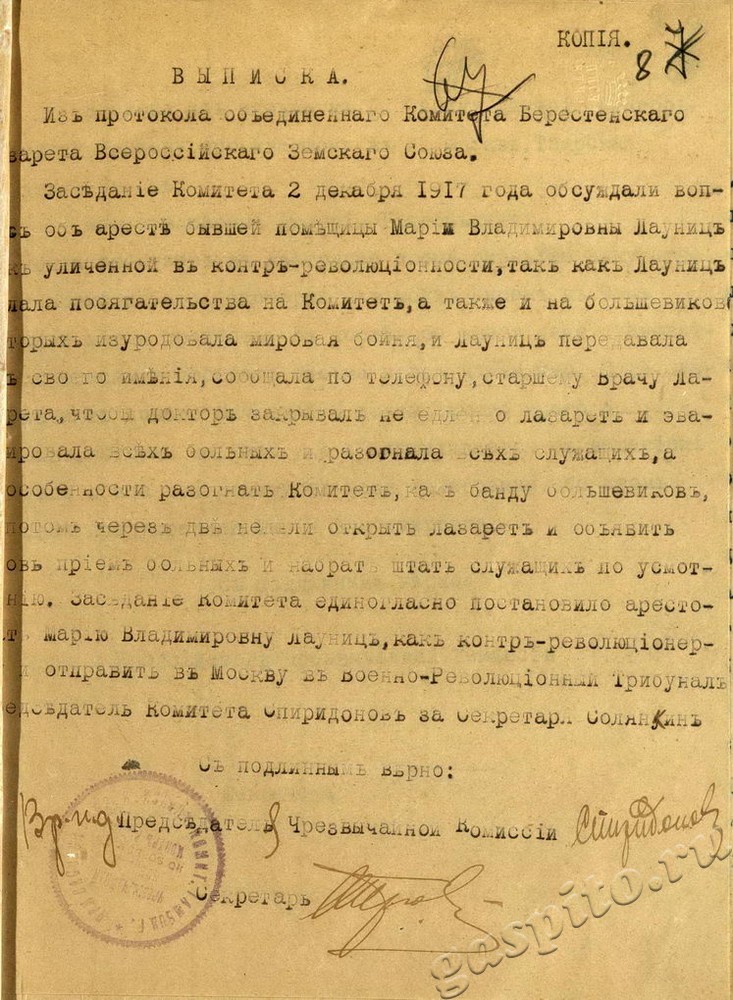 КОПІЯ.
8
ВЫПИСКА.
Изъ протокола объединеннаго Комитета Берестенскаго
зарета Всероссійскаго Земскаго Союза.
Засѣданіе Комитета 2 декабря 1917 года обсуждали воп-
съ объ арестѣ бывшей помѣщицы Маріи Владимировны Лауницъ
къ уличенной въ контръ-революціонности,такъ какъ Лауницъ
лала посягательства на Комитетъ,а также и на большевиков
торыхъ изуродовала мировая бойня,и Лауницъ передавала
ъ своего имѣнія,сообщала по телефону,старшему Врачу Ла-
рета,чтобы докторъ закрывалъ не едлен о лазаретъ и эва-
ировала всѣхъ больныхъ и разогнала всѣхъ служащихъ,а
особенности разогнать Комитетъ,ка ъ банду большевиковъ,
потомъ черезъ двѣ недѣли открыть лазаретъ и объявить
овь пріемъ больныхъ и набрать штатъ служащихъ по усмот-
нію. Засѣданіе Комитета единогласно постановило аресто-
ть Марію Владимировну Лауницъ,какъ контръ-революціонер-
и отправить въ Москву въ Военно-Революціонный Трибуналъ
едсѣдатель Комитета Спиридоновъ за Секретаря Солянкинъ
Съ подлиннымъ вѣрно:
Врид Предсѣдателя Чрезвычайной Комиссіи Спиридонов
Секретарь
gaspito.ru